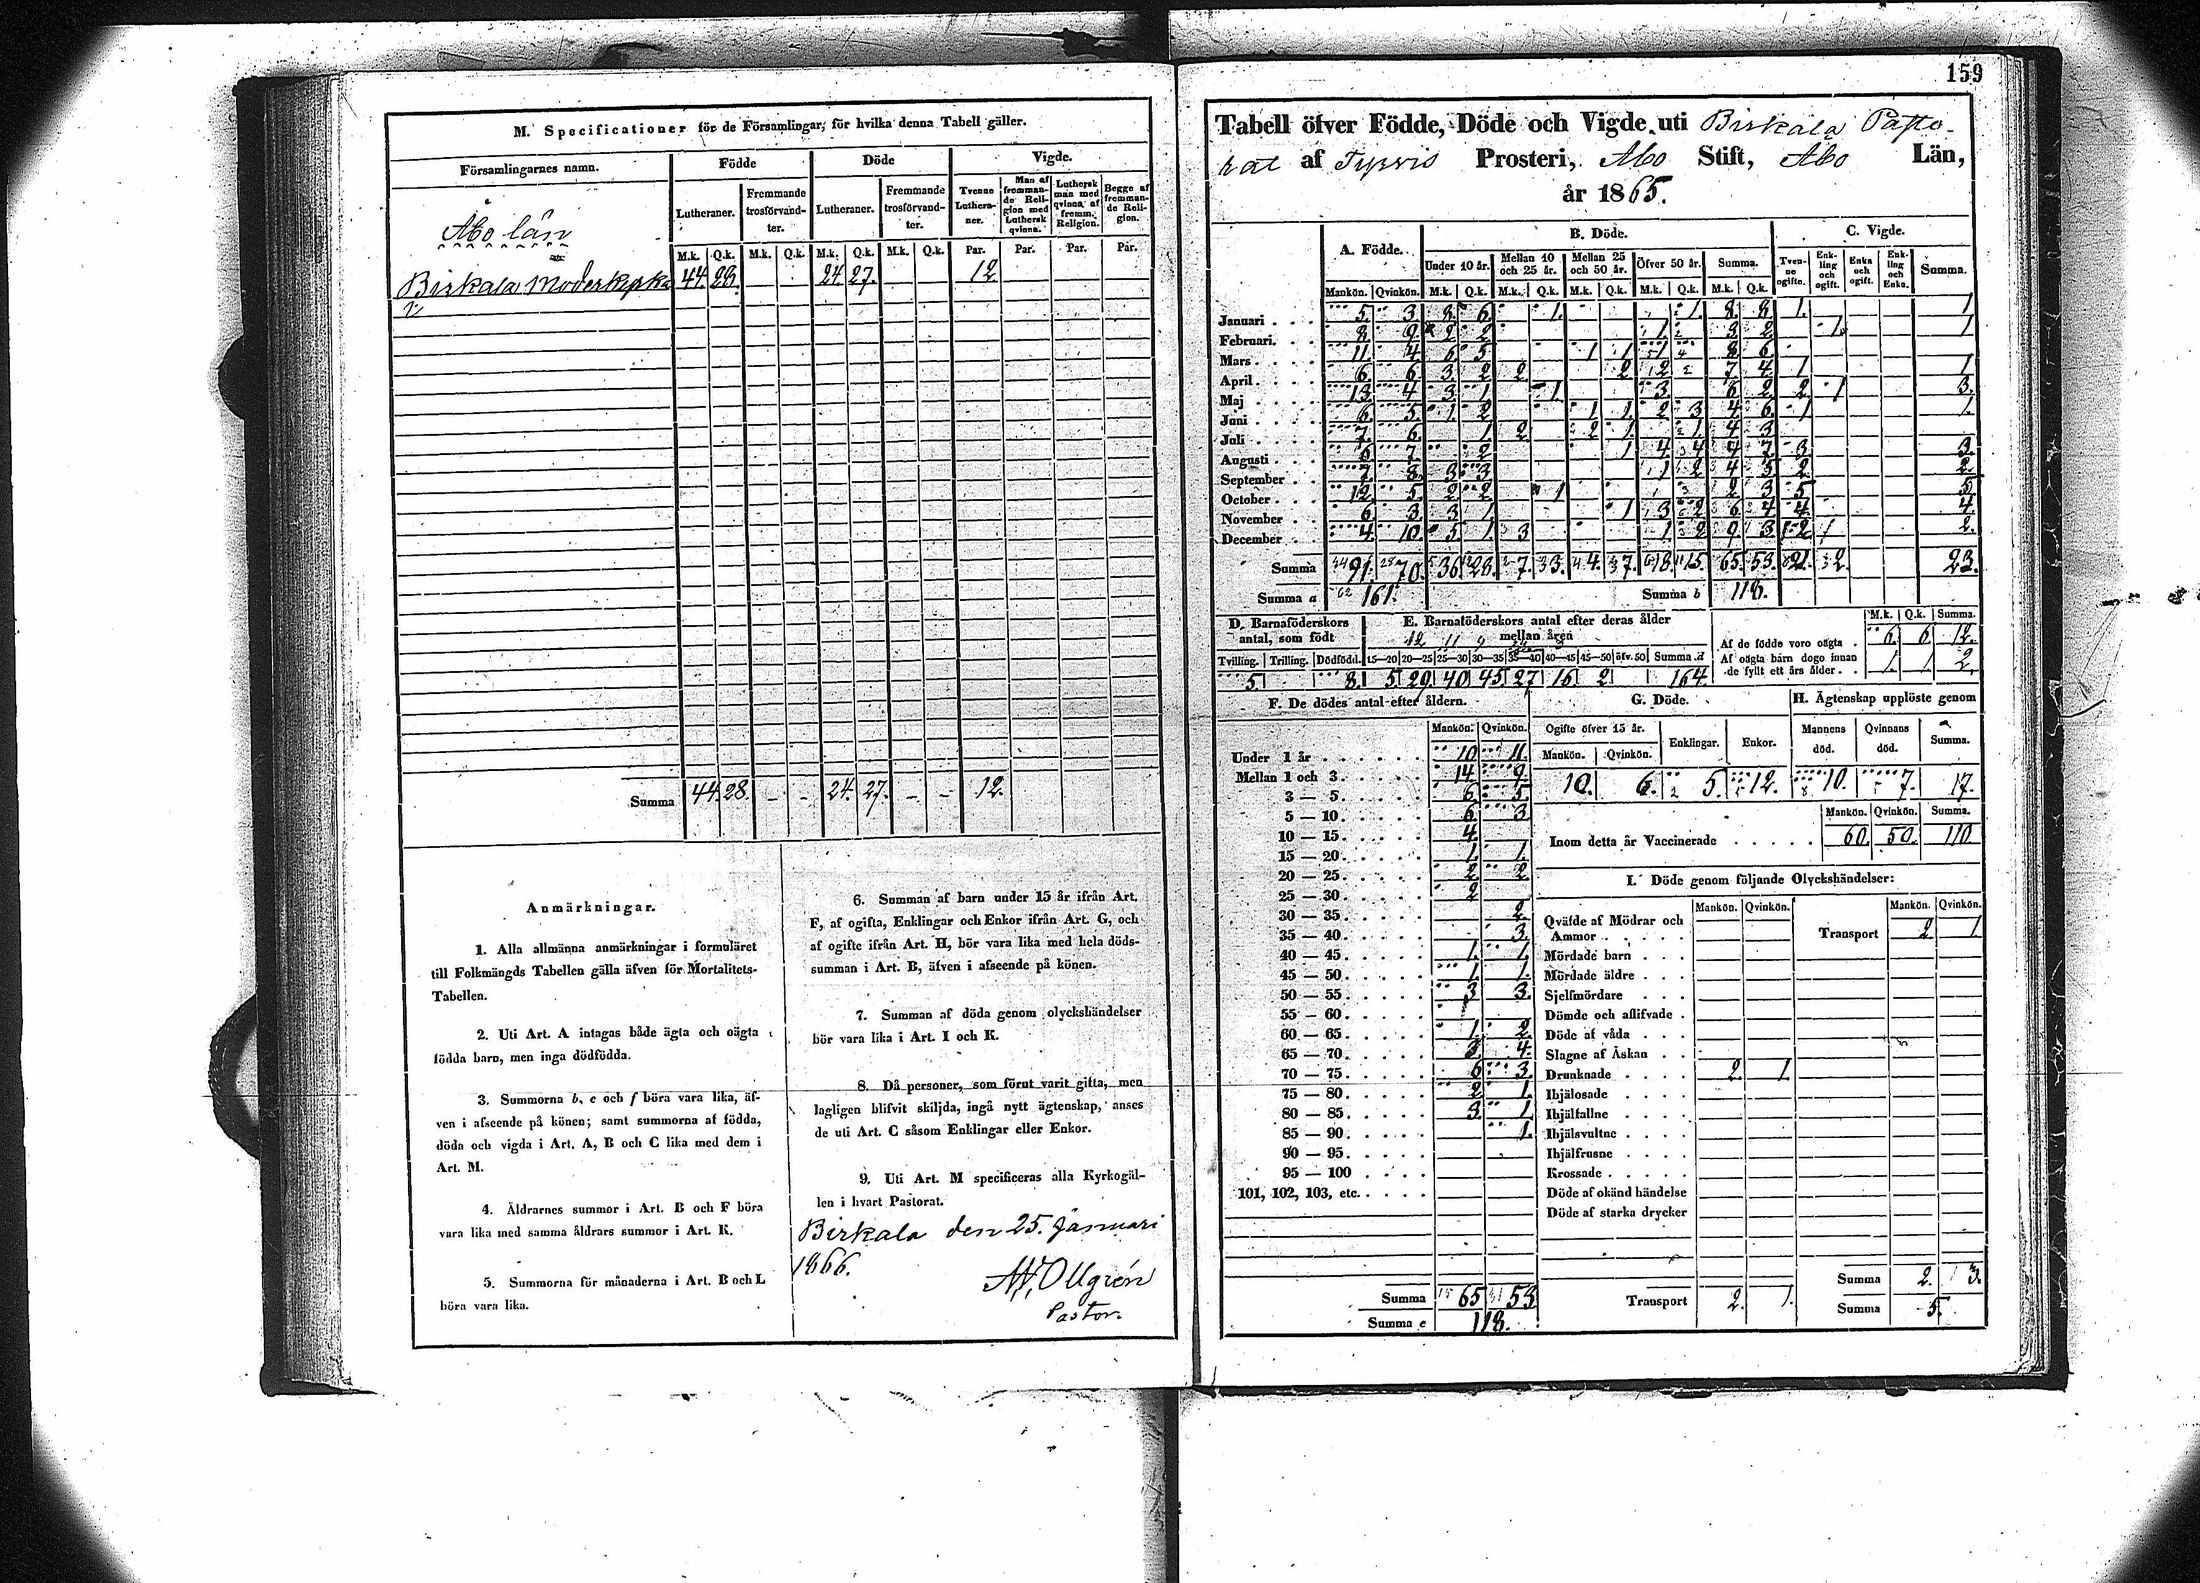 M. Specificationer för de Församlingar, för hvilka denna Tabell gäller.
Församlingarnes namn. Födde Döde Vigde.
Lutheraner. Fremmande trosförvandter. Lutheraner. Fremmande trosförvandter. Tvenne Lutheraner. Man af fremmande Religion med Luthersk qvinna. Luthersk man med qvinna af fremm. Religion. Begge af fremmande Religion.
Abo län
M.k. Q.k. M.k. Q.k. M.k. Q.k. M.k. Q.k. Par. Par. Par. Par.
Birkala Moderkyrka 44. 28. 24. 27. 12
Summa 44. 28. - - 24. 27. - - 12.
Anmärkningar.
1. Alla allmänna anmärkningar i formuläret
till Folkmängds Tabellen gälla äfven för Mortalitets-
Tabellen.
2. Uti Art. A intagas både ägta och oägta
födda barn, men inga dödfödda.
3. Summorna b, e och f böra vara lika, äf-
ven i afseende på könen; samt summorna af födda,
döda och vigda i Art. A, B och C lika med dem i
Art. M.
4. Åldrarnes summor i Art. B och F böra
vara lika med samma åldrars summor i Art. K.
5. Summorna för månaderna i Art. B och L
böra vara lika.
6. Summan af barn under 15 år ifrån Art.
F, af ogifta, Enklingar och Enkor ifrån Art. G, och
af ogifte ifrån Art. H, bör vara lika med hela döds-
summan i Art. B, äfven i afseende på könen.
7. Summan af döda genom olyckshändelser
bör vara lika i Art. I och K.
8. Då personer, som förut varit gifta, men
lagligen blifvit skiljda, ingå nytt ägtenskap, anses
de uti Art. C såsom Enklingar eller Enkor.
9. Uti Art. M specificeras alla Kyrkogäl-
len i hvart Pastorat.
Birkala den 25. Januari
1866.
Ollgrén
Pastor.
159
Tabell öfver Födde, Döde och Vigde uti Birkala Pasto-
rat af Tyrvis Prosteri, Abo Stift, Abo Län,
år 1865.
A. Födde. B. Döde. C. Vigde.
Under 10 år. Mellan 10 och 25 år. Mellan 25 och 50 år. Öfver 50 år. Summa. Tvenne ogifte. Enkling och ogift. Enka och ogift. Enkling och Enka. Summa.
Mankön. Qvinkön. M.k. Q.k. M.k. Q.k. M.k. Q.k. M.k. Q.k. M.k. Q.k.
Januari 5. 3 8. 6. 1. 1. 8. 8. 1. 1
Februari 8. 9. 2. 2 1. 3 2. 1. 1
Mars 11. 4 6. 5. 1 1. 1 8. 6.
April 6. 6. 3. 2 2 2. 2 7. 4. 1 1
Maj 13. 4 3. 1 1 3. 6 2. 2. 1 3.
Juni 6. 5. 1. 2 1. 1. 2 3 4. 6. 1 1.
Juli 7. 6. 1. 2 2 1. 1. 4. 3
Augusti 7. 2 1 4. 4 4. 7. 3. 3.
September 7. 8. 3. 3. 1. 2. 4. 5 2. 2.
October 12. 5. 2. 2. 1 2. 3 5. 5.
November 6. 3 3. 1 1. 3. 2. 6. 4 4. 4.
December 4. 10. 5. 1. 3 1. 2 9. 3 2. 1 2.
Summa 91. 70. 36. 28. 7. 3. 4. 7. 18. 15. 65. 53. 21. 2. 23.
Summa a 161. Summa b 118.
D. Barnaföderskors antal, som födt
E. Barnaföderskors antal efter deras ålder mellan åren
M.k. Q.k. Summa.
Af de födde voro oägta 6. 6. 12.
Af oägta barn dogo innan de fyllt ett års ålder 1. 1. 2.
Tvilling. Trilling. Dödfödd. 15—20 20—25 25—30 30—35 35—40 40—45 45—50 öfv. 50 Summa d
5. 8. 5. 29. 40. 45. 27. 16. 2. 164.
F. De dödes antal efter åldern.
Mankön. Qvinkön.
Under 1 år 10. 11.
Mellan 1 och 3 14. 9.
3 — 5. 6. 5.
5 — 10. 6. 3
10 — 15. 4.
15 — 20. 1. 1.
20 — 25. 2. 2.
25 — 30. 2
30 — 35. 2.
35 — 40. 3.
40 — 45. 1. 1.
45 — 50. 1. 1.
50 — 55. 3 3.
55 — 60.
60 — 65. 1. 2.
65 — 70. 3. 4.
70 — 75. 6. 3.
75 — 80. 2. 1.
80 — 85. 3. 1.
85 — 90. 1.
90 — 95.
95 — 100
101, 102, 103, etc.
Summa 65 53.
Summa e 118.
G. Döde.
Ogifte öfver 15 år. Enklingar. Enkor.
Mankön. Qvinkön.
10. 6. 5. 12.
H. Ägtenskap upplöste genom
Mannens död. Qvinnans död. Summa.
10. 7. 17.
Mankön. Qvinkön. Summa.
Inom detta år Vaccinerade 60. 50. 110.
I. Döde genom följande Olyckshändelser:
Mankön. Qvinkön. Mankön. Qvinkön.
Qväfde af Mödrar och
Ammor Transport 2 1.
Mördade barn
Mördade äldre
Sjelfmördare
Dömde och aflifvade
Döde af våda
Slagne af Åskan
Drunknade 2. 1.
Ihjälosade
Ihjälfallne
Ihjälsvultne
Ihjälfrusne
Krossade
Döde af okänd händelse
Döde af starka drycker
Summa 2. 3.
Transport 2. 1. Summa 5.